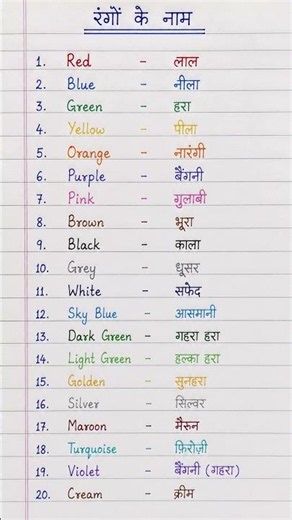 रंगों के नाम
1. Red - लाल
2. Blue - नीला
3. Green - हरा
4. Yellow - पीला
5. Orange - नारंगी
6. Purple - बैंगनी
7. Pink - गुलाबी
8. Brown - भूरा
9. Black - काला
10. Grey - धूसर
11. White - सफेद
12. Sky Blue - आसमानी
13. Dark Green - गहरा हरा
14. Light Green - हल्का हरा
15. Golden - सुनहरा
16. Silver - सिल्वर
17. Maroon - मैरून
18. Turquoise - फ़िरोज़ी
19. Violet - बैंगनी (गहरा)
20. Cream - क्रीम